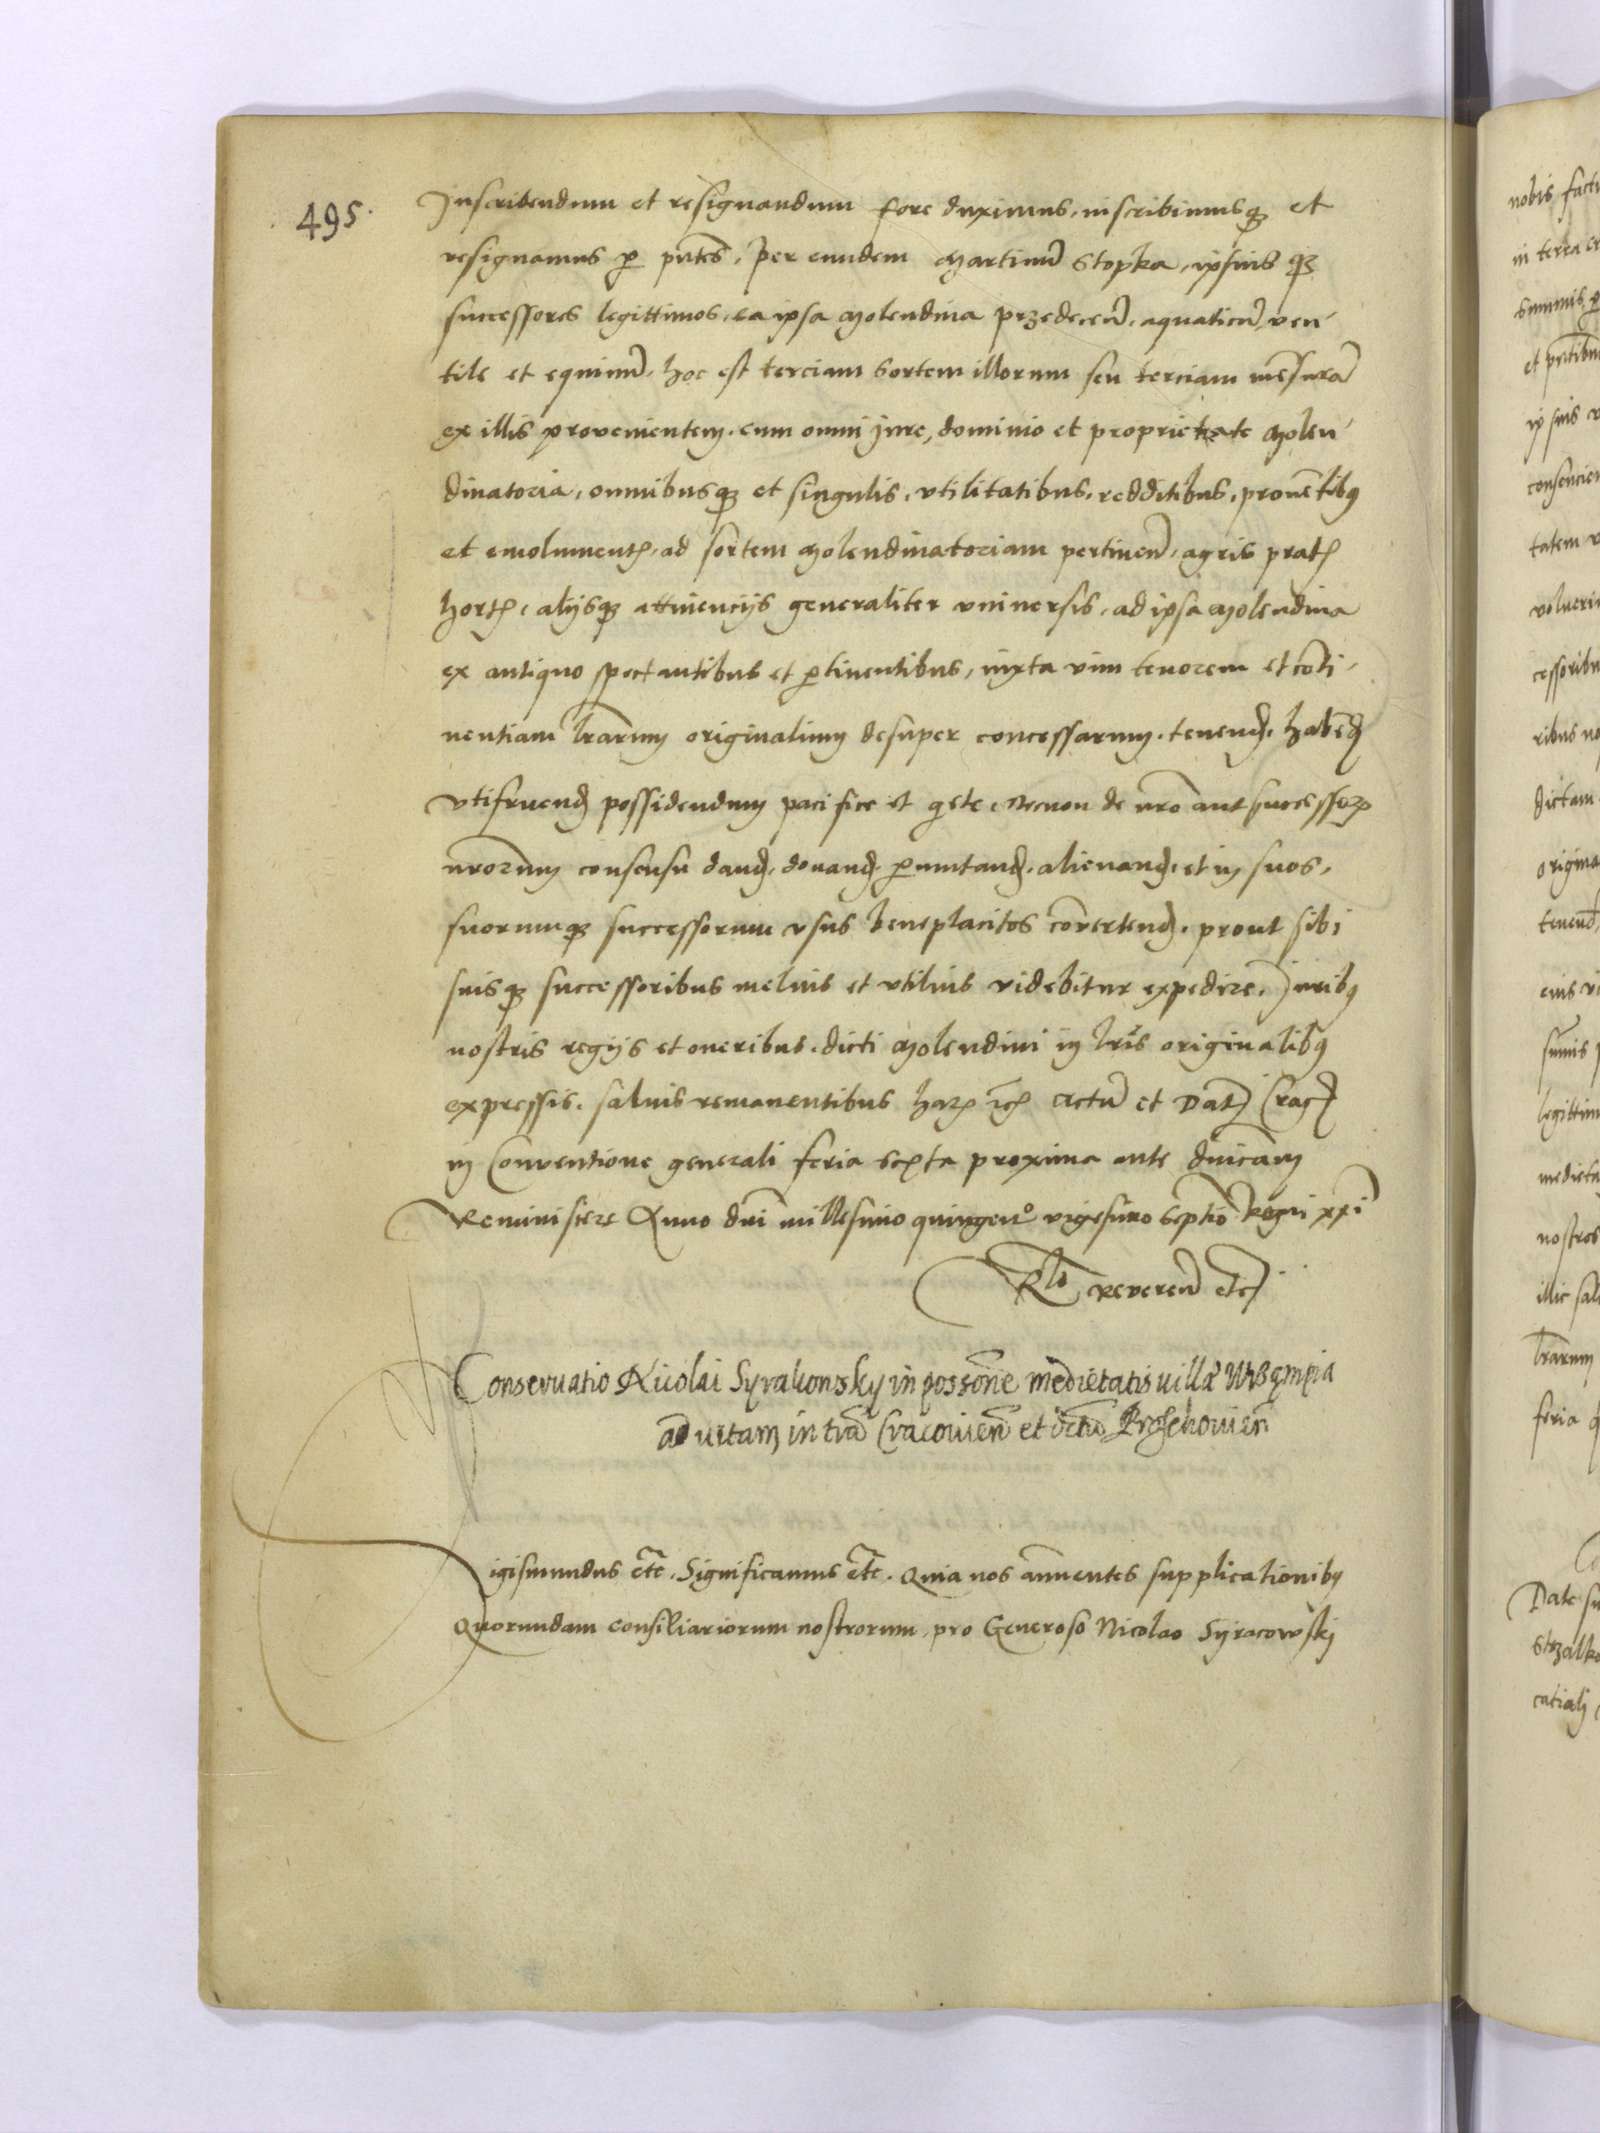 495.
Inscribendum et resignandum fore duximus, inscribimusq et
resignamus p pntes, per eundem Martinu Stopka, ipsius q
successores legittimos, ea ipsa Molendina predecen, aquaticu, ven
tile et equinu, hoc est terciam sortem illorum seu terciam mesura
ex illis provenientem, cum omni Jure, dominio et proprietate Molen
dinatoria, omnibusq et singulis, vtilitatibus, redditibus, proventibq
et emolument, ad sortem Molendinatoriam pertinen, agris prat
hort, alijsq attinencijs generaliter vniuersis, ad ipsa Molendina
ex antiquo spectantibus et ptinentibus, iuxta vim tenorem et coti
nentiam lrarum originalium desuper concessarum, tenend, habed
vtifruend possidendum pacifice et qete, Necnon de nro aut successor
nrorum consensu dand, donand, pmutand, alienand, et in suos,
suorumq successorum vsus beneplacitos convertend, prout sibi
suisq successoribus melius et vtilius videbitur expedire, Juribq
nostris regijs et oneribus, dicti Molendini in lris originalibq
expressis, saluis remanentibus har Actu et Dat Crac
in Conventione generali feria sexta proxima ante dnicam
Reminiscere Anno dni millesimo quingen° vigesimo septio Regni xxi
Rlo reveren etc
Conservatio Nicolai Syrakowsky in possone medietatis villæ
ad vitam in tra Cracovien et dctu Proschovien
igismundus etc. Significamus etc. Quia nos annuentes supplicationibq
Quorundam consiliariorum nostrorum, pro Generoso Nicolao Syracowskj
nobis fact
in terra cr
summis p
et
ipsius v
consencien
tatem v
volueri
cessoribu
ribus no
dictam
origina
tenend,
eius vi
sumis
legittim
medieta
nostros
illic sal
lrarum
feria q
Date su
Strzalko